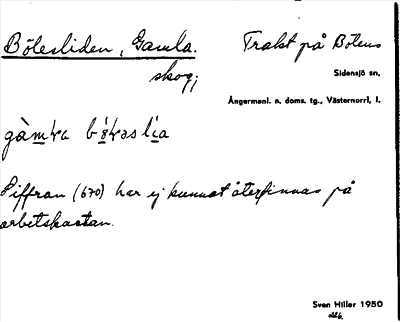 Bölesliden, Gamla. Trakt på Bölens
skog; Sidensjö sn,
Ångermanl. n. doms. tg., Västernorrl. l.
Siffran (670) har ej kunnat återfinnas på
arbetskartan.
Sven Hiller 1950